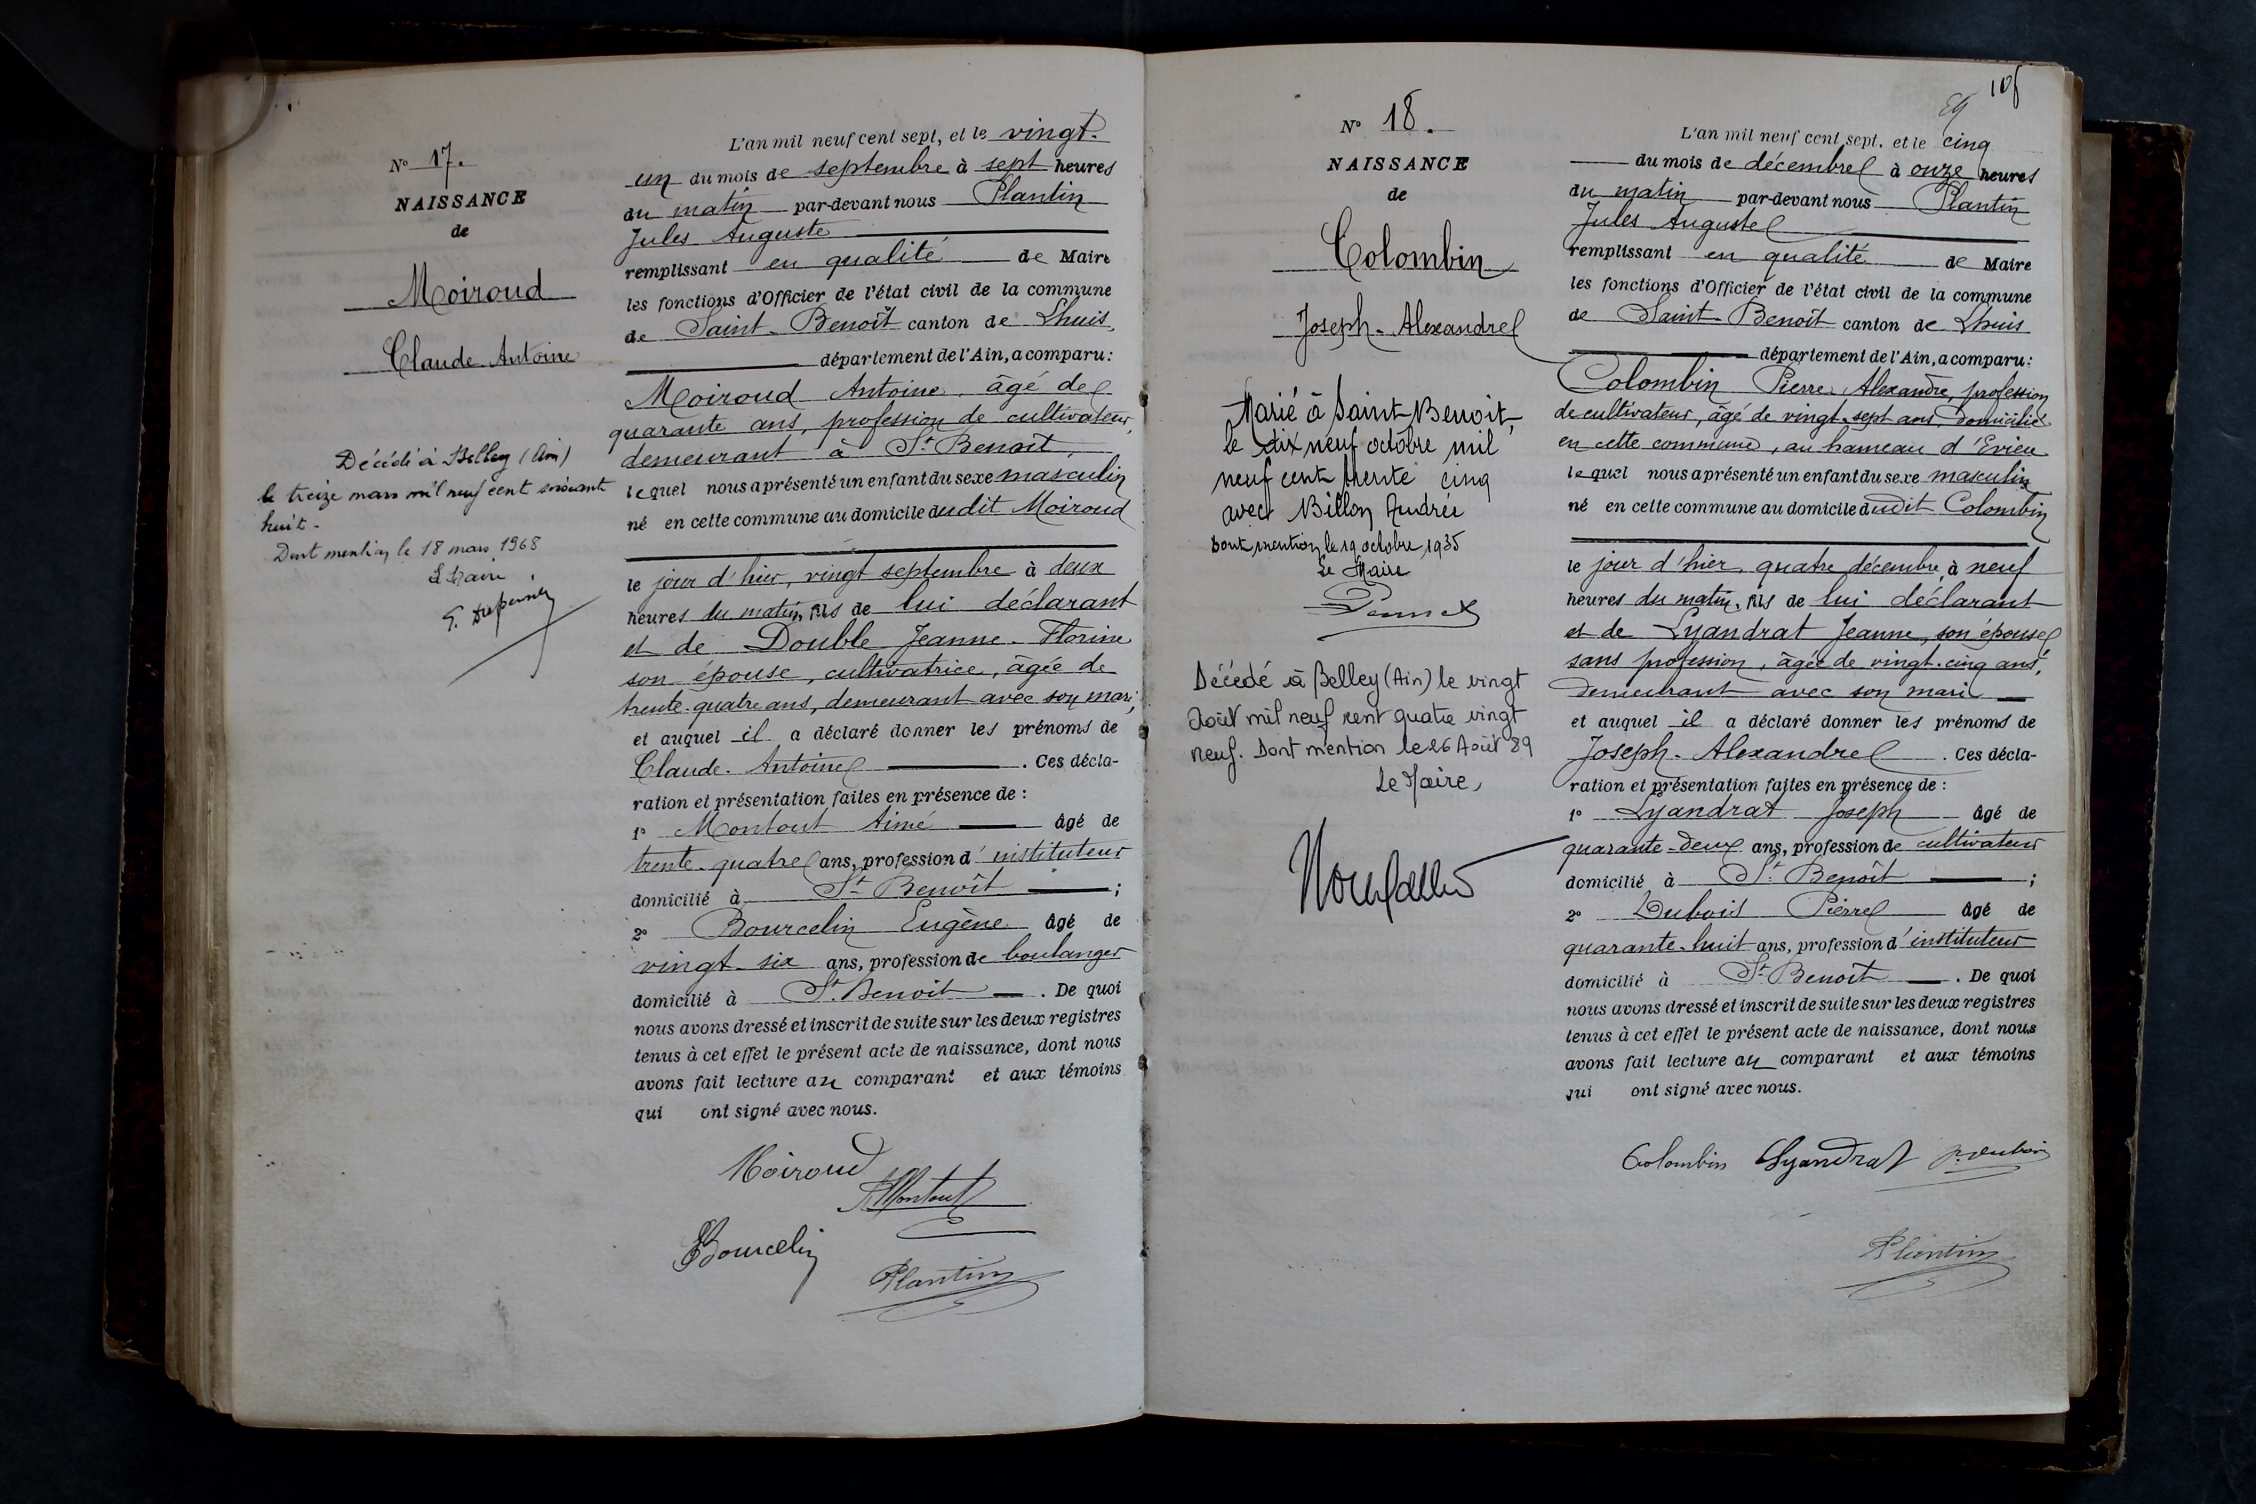 N° 17.
NAISSANCE
de
Moiroud
Claude Antoine
Décédé à Belley (Ain)
le treize mars mil neuf cent soixante
huit.
Dont mention le 18 mars 1968
Le Maire
L'an mil neuf cent sept, et le vingt-
un du mois de septembre à sept heures
du matin par-devant nous Plantin
Jules Auguste
remplissant en qualité de Maire
les fonctions d'Officier de l'état civil de la commune
de Saint-Benoît canton de Lhuis,
département de l'Ain, a comparu:
Moiroud Antoine, âgé de
quarante ans, profession de cultivateur,
demeurant à St Benoît,
lequel nous a présenté un enfant du sexe masculin
né en cette commune au domicile dudit Moiroud
le jour d'hier, vingt septembre à deux
heures du matin, fils de lui déclarant
et de Double Jeanne-Florine
son épouse, cultivatrice, âgée de
trente-quatre ans, demeurant avec son mari,
et auquel il a déclaré donner les prénoms de
Claude-Antoine . Ces décla-
ration et présentation faites en présence de :
1° Montout Aimé âgé de
trente-quatre ans, profession d'instituteur
domicilié à St Benoît ;
2° Bourcelin Eugène âgé de
vingt-six ans, profession de boulanger
domicilié à St. Benoît . De quoi
nous avons dressé et inscrit de suite sur les deux registres
tenus à cet effet le présent acte de naissance, dont nous
avons fait lecture au comparant et aux témoins
qui ont signé avec nous.
Moiroud
AMontout
Bourcelin
Plantin
N° 18.
NAISSANCE
de
Colombin
Joseph-Alexandre
Marié à Saint-Benoit,
le dix neuf octobre mil
neuf cent trente cinq
avec Billon Andrée
Dont mention le 19 octobre 1935
Le Maire
Décédé à Belley (Ain) le vingt
Août mil neuf cent quatre vingt
neuf. Dont mention le 26 Août 89
Le Maire,
L'an mil neuf cent sept, et le cinq
du mois de décembre à onze heures
du matin par-devant nous Plantin
Jules Auguste
remplissant en qualité de Maire
les fonctions d'Officier de l'état civil de la commune
de Saint-Benoît canton de Lhuis
département de l'Ain, a comparu:
Colombin Pierre Alexandre, profession
de cultivateur, âgé de vingt-sept ans, domicilié
en cette commune, au hameau d'Evieu
lequel nous a présenté un enfant du sexe masculin
né en cette commune au domicile dudit Colombin
le jour d'hier, quatre décembre, à neuf
heures du matin, fils de lui déclarant
et de Lyandrat Jeanne, son épouse
sans profession, âgée de vingt-cinq ans,
demeurant avec son mari
et auquel il a déclaré donner les prénoms de
Joseph-Alexandre . Ces décla-
ration et présentation faites en présence de :
1° Lyandrat Joseph âgé de
quarante-deux ans, profession de cultivateur
domicilié à St Benoît ;
2° Dubois Pierre âgé de
quarante-huit ans, profession d'instituteur
domicilié à St Benoît . De quoi
nous avons dressé et inscrit de suite sur les deux registres
tenus à cet effet le présent acte de naissance, dont nous
avons fait lecture au comparant et aux témoins
qui ont signé avec nous.
Colombin Lyandrat P. Dubois
Plantin